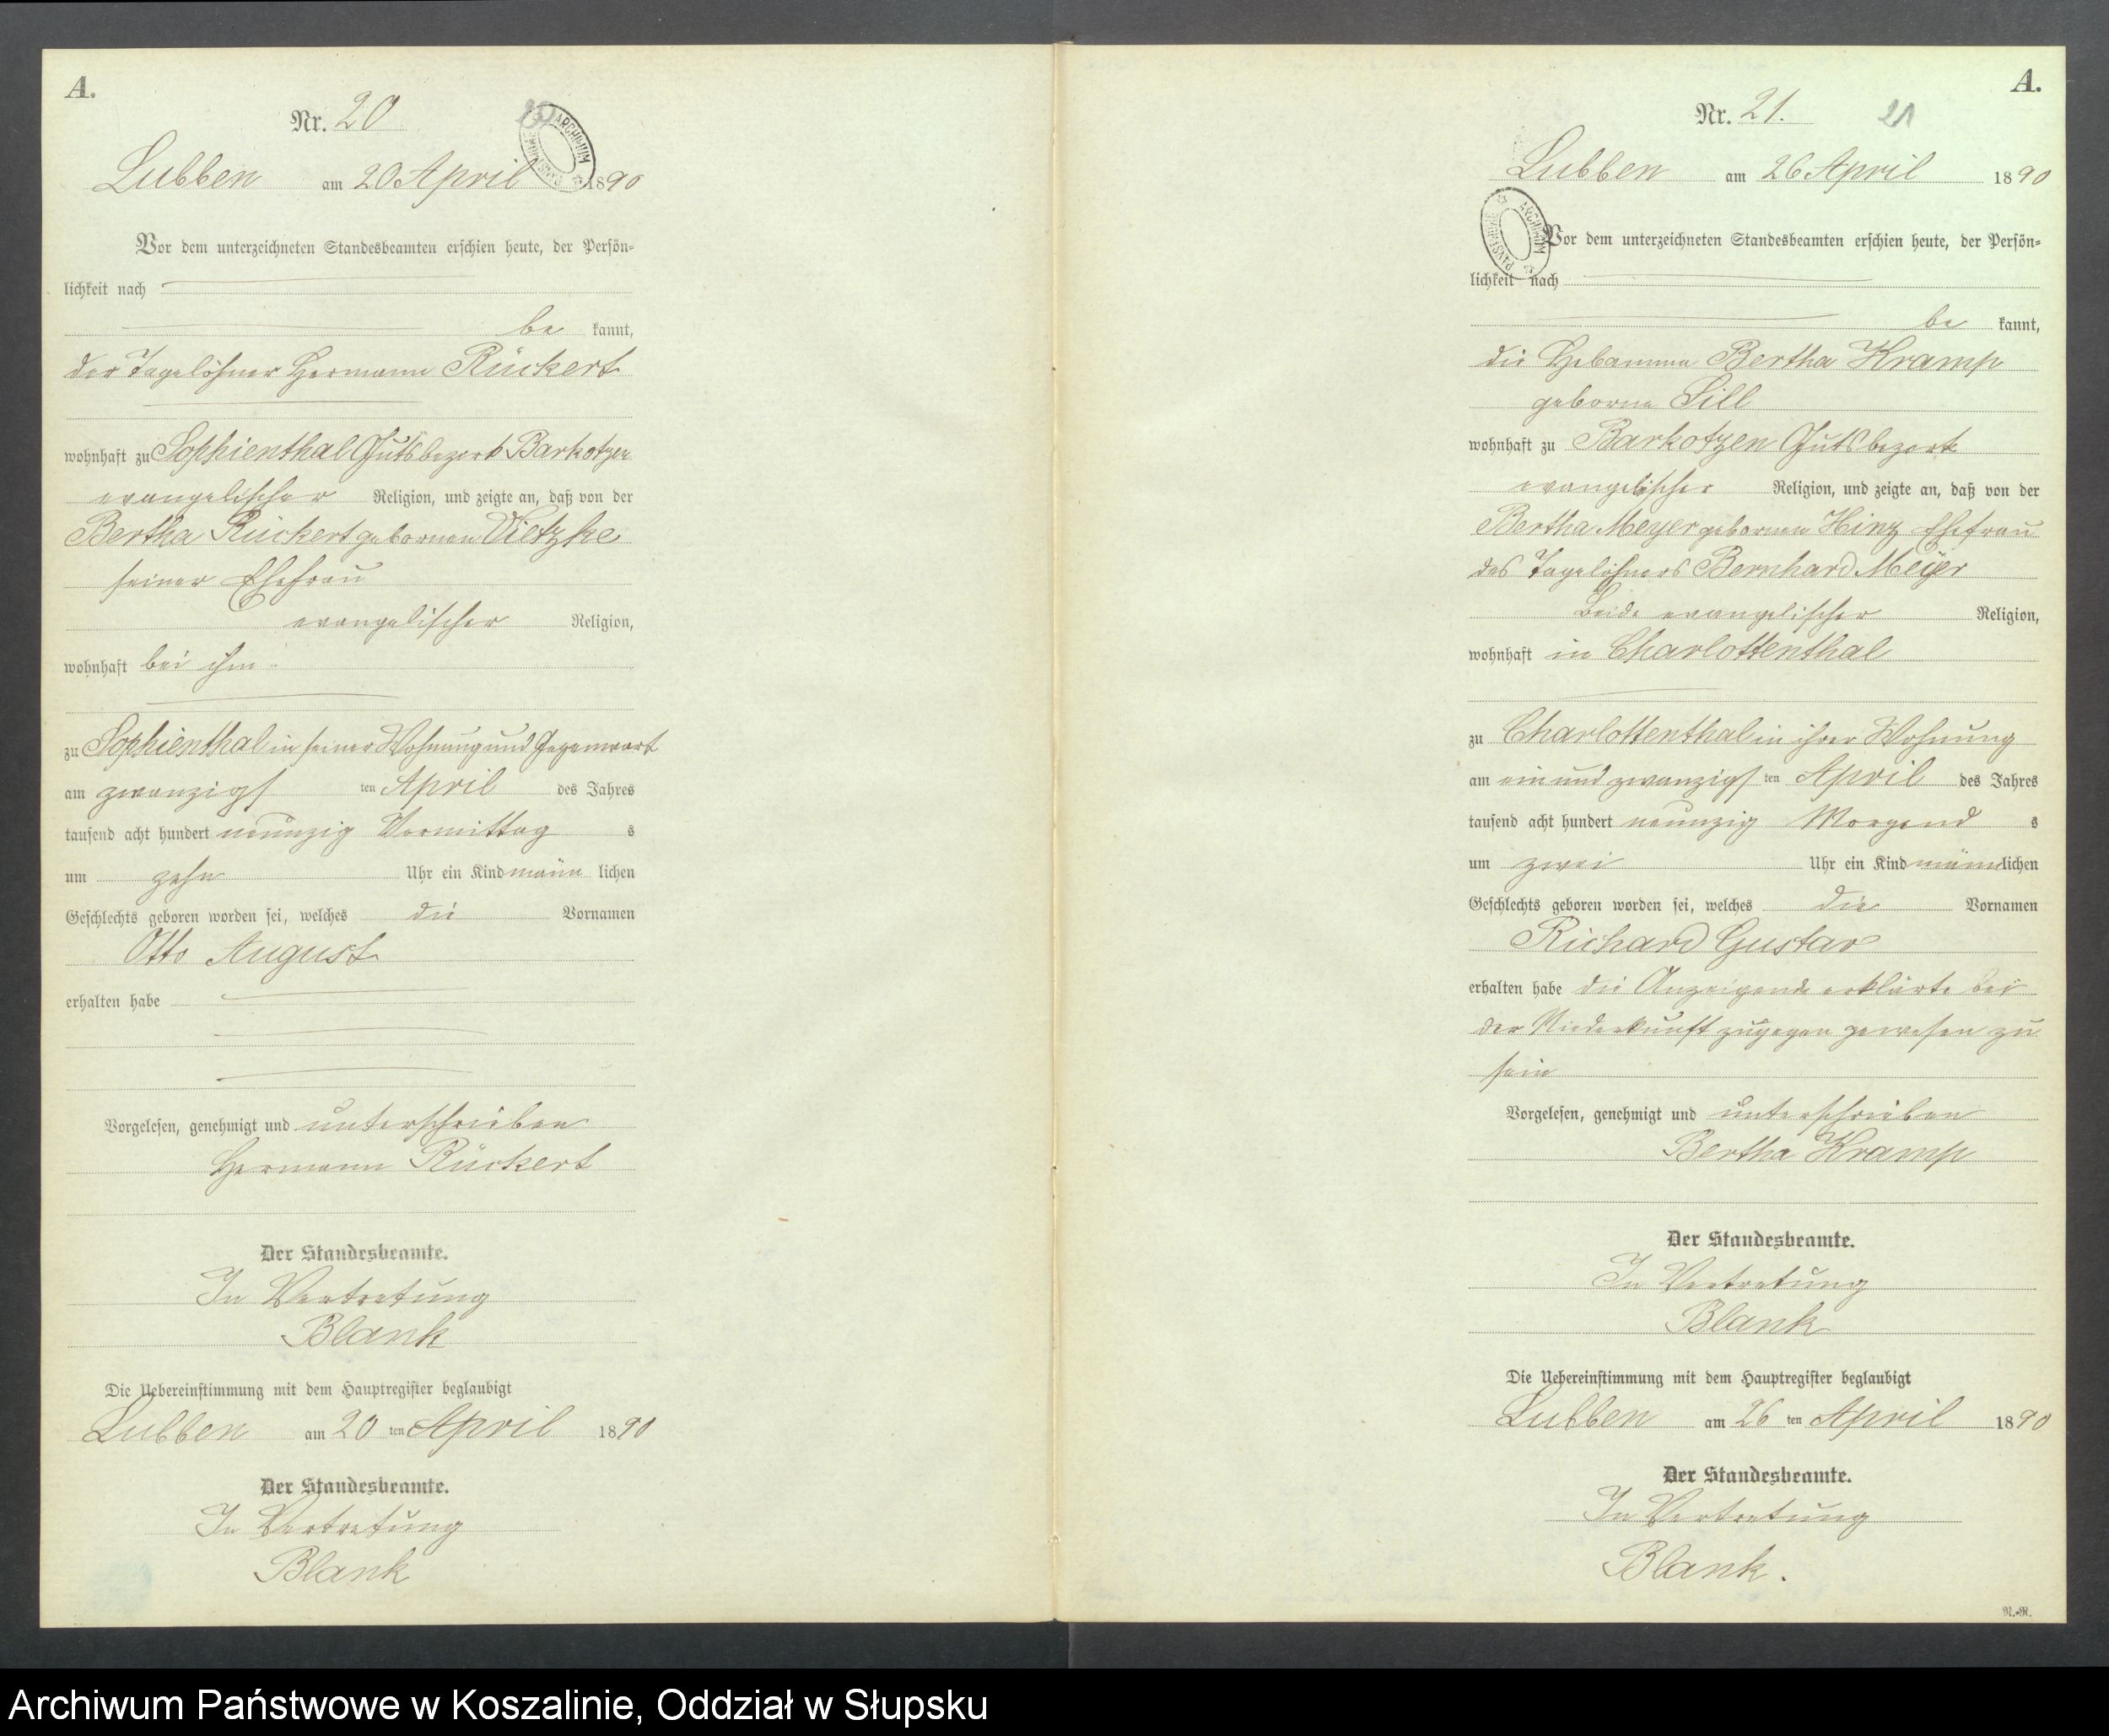 A.
Nr. 20
20
Lubben am 20 April 1890
Vor dem unterzeichneten Standesbeamten erschien heute, der Persön-
lichkeit nach
be kannt,
der Tagelöhner Hermann Rückert
wohnhaft zu Sophienthal Gutsbezirk Barkotzen
evangelischer Religion, und zeigte an, daß von der
Bertha Rückert gebornen Vietzke
seiner Ehefrau
evangelischer Religion,
wohnhaft bei ihm
zu Sophienthal in seiner Wohnung und Gegenwart
am zwanzigs ten April des Jahres
tausend acht hundert neunzig Vormittag s
um zehn Uhr ein Kind männ lichen
Geschlechts geboren worden sei, welches die Vornamen
Otto August
erhalten habe
Vorgelesen, genehmigt und unterschrieben
Hermann Rückert
Der Standesbeamte.
In Vertretung
Blank
Die Uebereinstimmung mit dem Hauptregister beglaubigt
Lubben am 20 ten April 1890
Der Standesbeamte.
In Vertretung
Blank
A.
Nr. 21.
21
Lubben am 26 April 1890
Vor dem unterzeichneten Standesbeamten erschien heute, der Persön-
lichkeit nach
be kannt,
die Hebamme Bertha Kramp
geborne Sill
wohnhaft zu Barkotzen Gutsbezirk
evangelischer Religion, und zeigte an, daß von der
Bertha Meyer gebornen Hinz Ehefrau
des Tagelöhners Bernhard Meyer
beide evangelischer Religion,
wohnhaft in Charlottenthal
zu Charlottenthal in ihrer Wohnung
am ein und zwanzigs ten April des Jahres
tausend acht hundert neunzig Morgend s
um zwei Uhr ein Kind männlichen
Geschlechts geboren worden sei, welches die Vornamen
Richard Gustav
erhalten habe die Anzeigende erklärte bei
der Niederkunft zugegen gewesen zu
sein
Vorgelesen, genehmigt und unterschrieben
Bertha Kramp
Der Standesbeamte.
In Vertretung
Blank
Die Uebereinstimmung mit dem Hauptregister beglaubigt
Lubben am 26 ten April 1890
Der Standesbeamte.
In Vertretung
Blank.
R.-R.
ARCHIWUM PAŃSTWOWE
Archiwum Państwowe w Koszalinie, Oddział w Słupsku